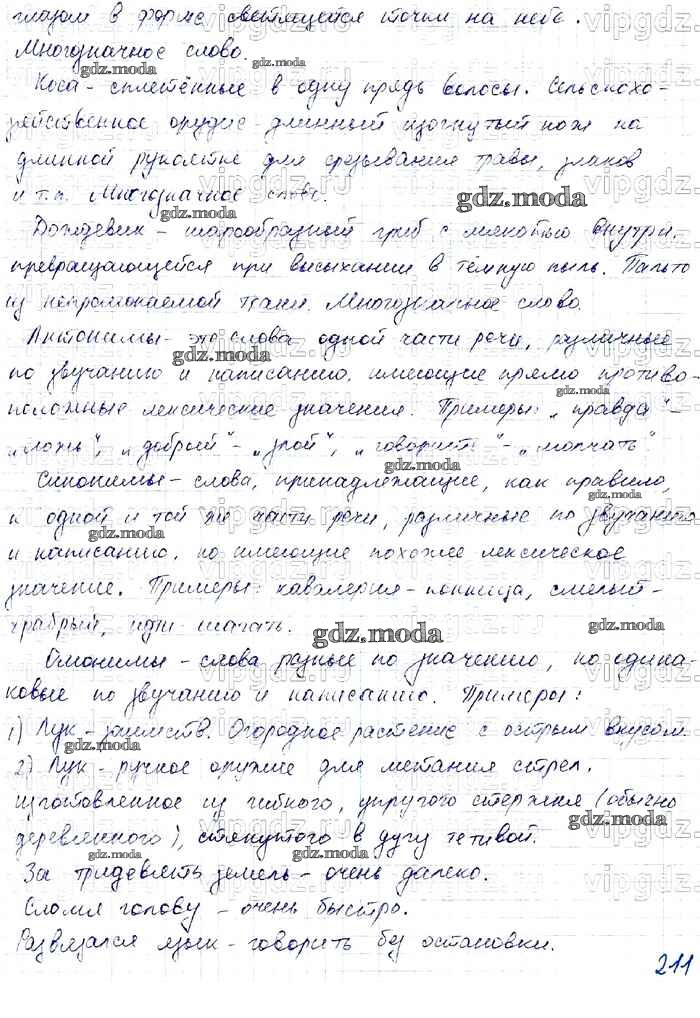 глазом в форме светящейся точки на небе.
Многозначное слово.
Коса - сплетённые в одну прядь волосы. Сельскохо-
зяйственное орудие - длинный изогнутый нож на
длинной рукоятке для срезывания травы, злаков
и т.п. Многозначное слово.
Дождевик - шарообразный гриб с мякотью внутри,
превращающейся при высыхании в тёмную пыль. Пальто
из непромокаемой ткани. Многозначное слово.
Антонимы - это слова одной части речи, различные
по звучанию и написанию, имеющие прямо противо-
положные лексические значения. Примеры: „правда" -
„ложь", „добрый" - „злой", „говорить" - „молчать"
Синонимы - слова, принадлежащие, как правило,
к одной и той же части речи, различные по звучанию
и написанию, но имеющие похожее лексическое
значение. Примеры: кавалерия - конница, смелый -
храбрый, идти - шагать.
Омонимы - слова разные по значению, но одина-
ковые по звучанию и написанию. Примеры:
1) Лук - заимств. Огородное растение с острым вкусом
2) Лук - ручное оружие для метания стрел,
изготовленное из гибкого, упругого стержня (обычно
деревянного), стянутого в дугу тетивой.
За тридевять земель - очень далеко.
Сломя голову - очень быстро.
Развязался язык - говорить без остановки.
211